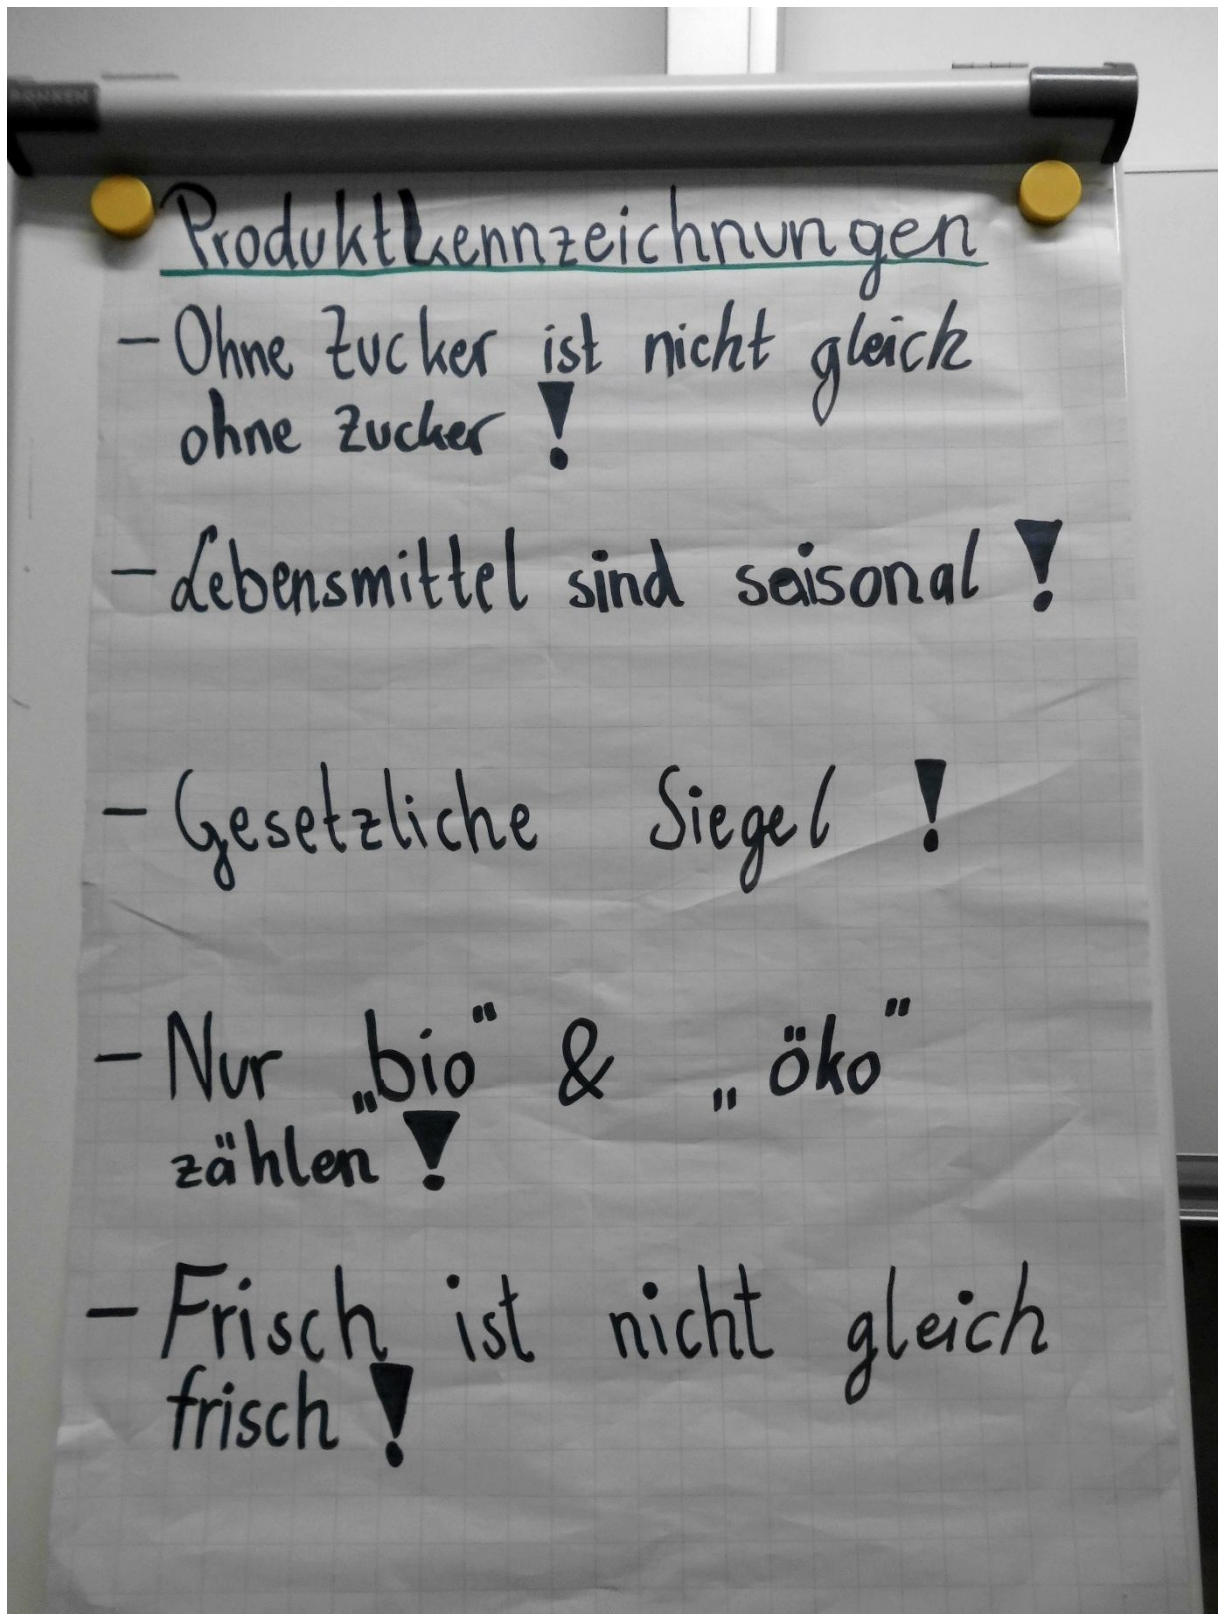 Produktkennzeichnungen
– Ohne Zucker ist nicht gleich
ohne Zucker !
– Lebensmittel sind saisonal !
– Gesetzliche Siegel !
– Nur „bio" & „öko"
zählen !
– Frisch ist nicht gleich
frisch !